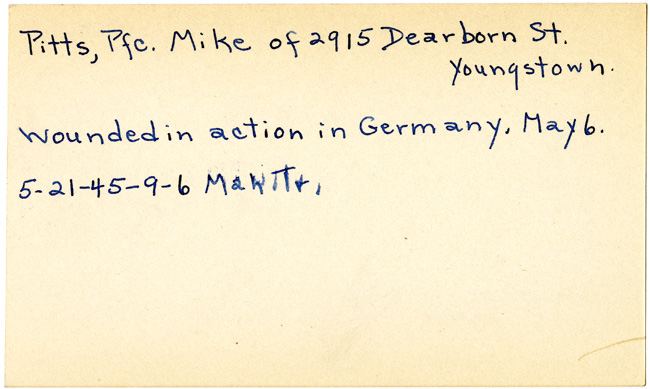 Pitts, Pfc. Mike of 2915 Dearborn St.
Youngstown.
Wounded in action in Germany, May 6.
5-21-45-9-6